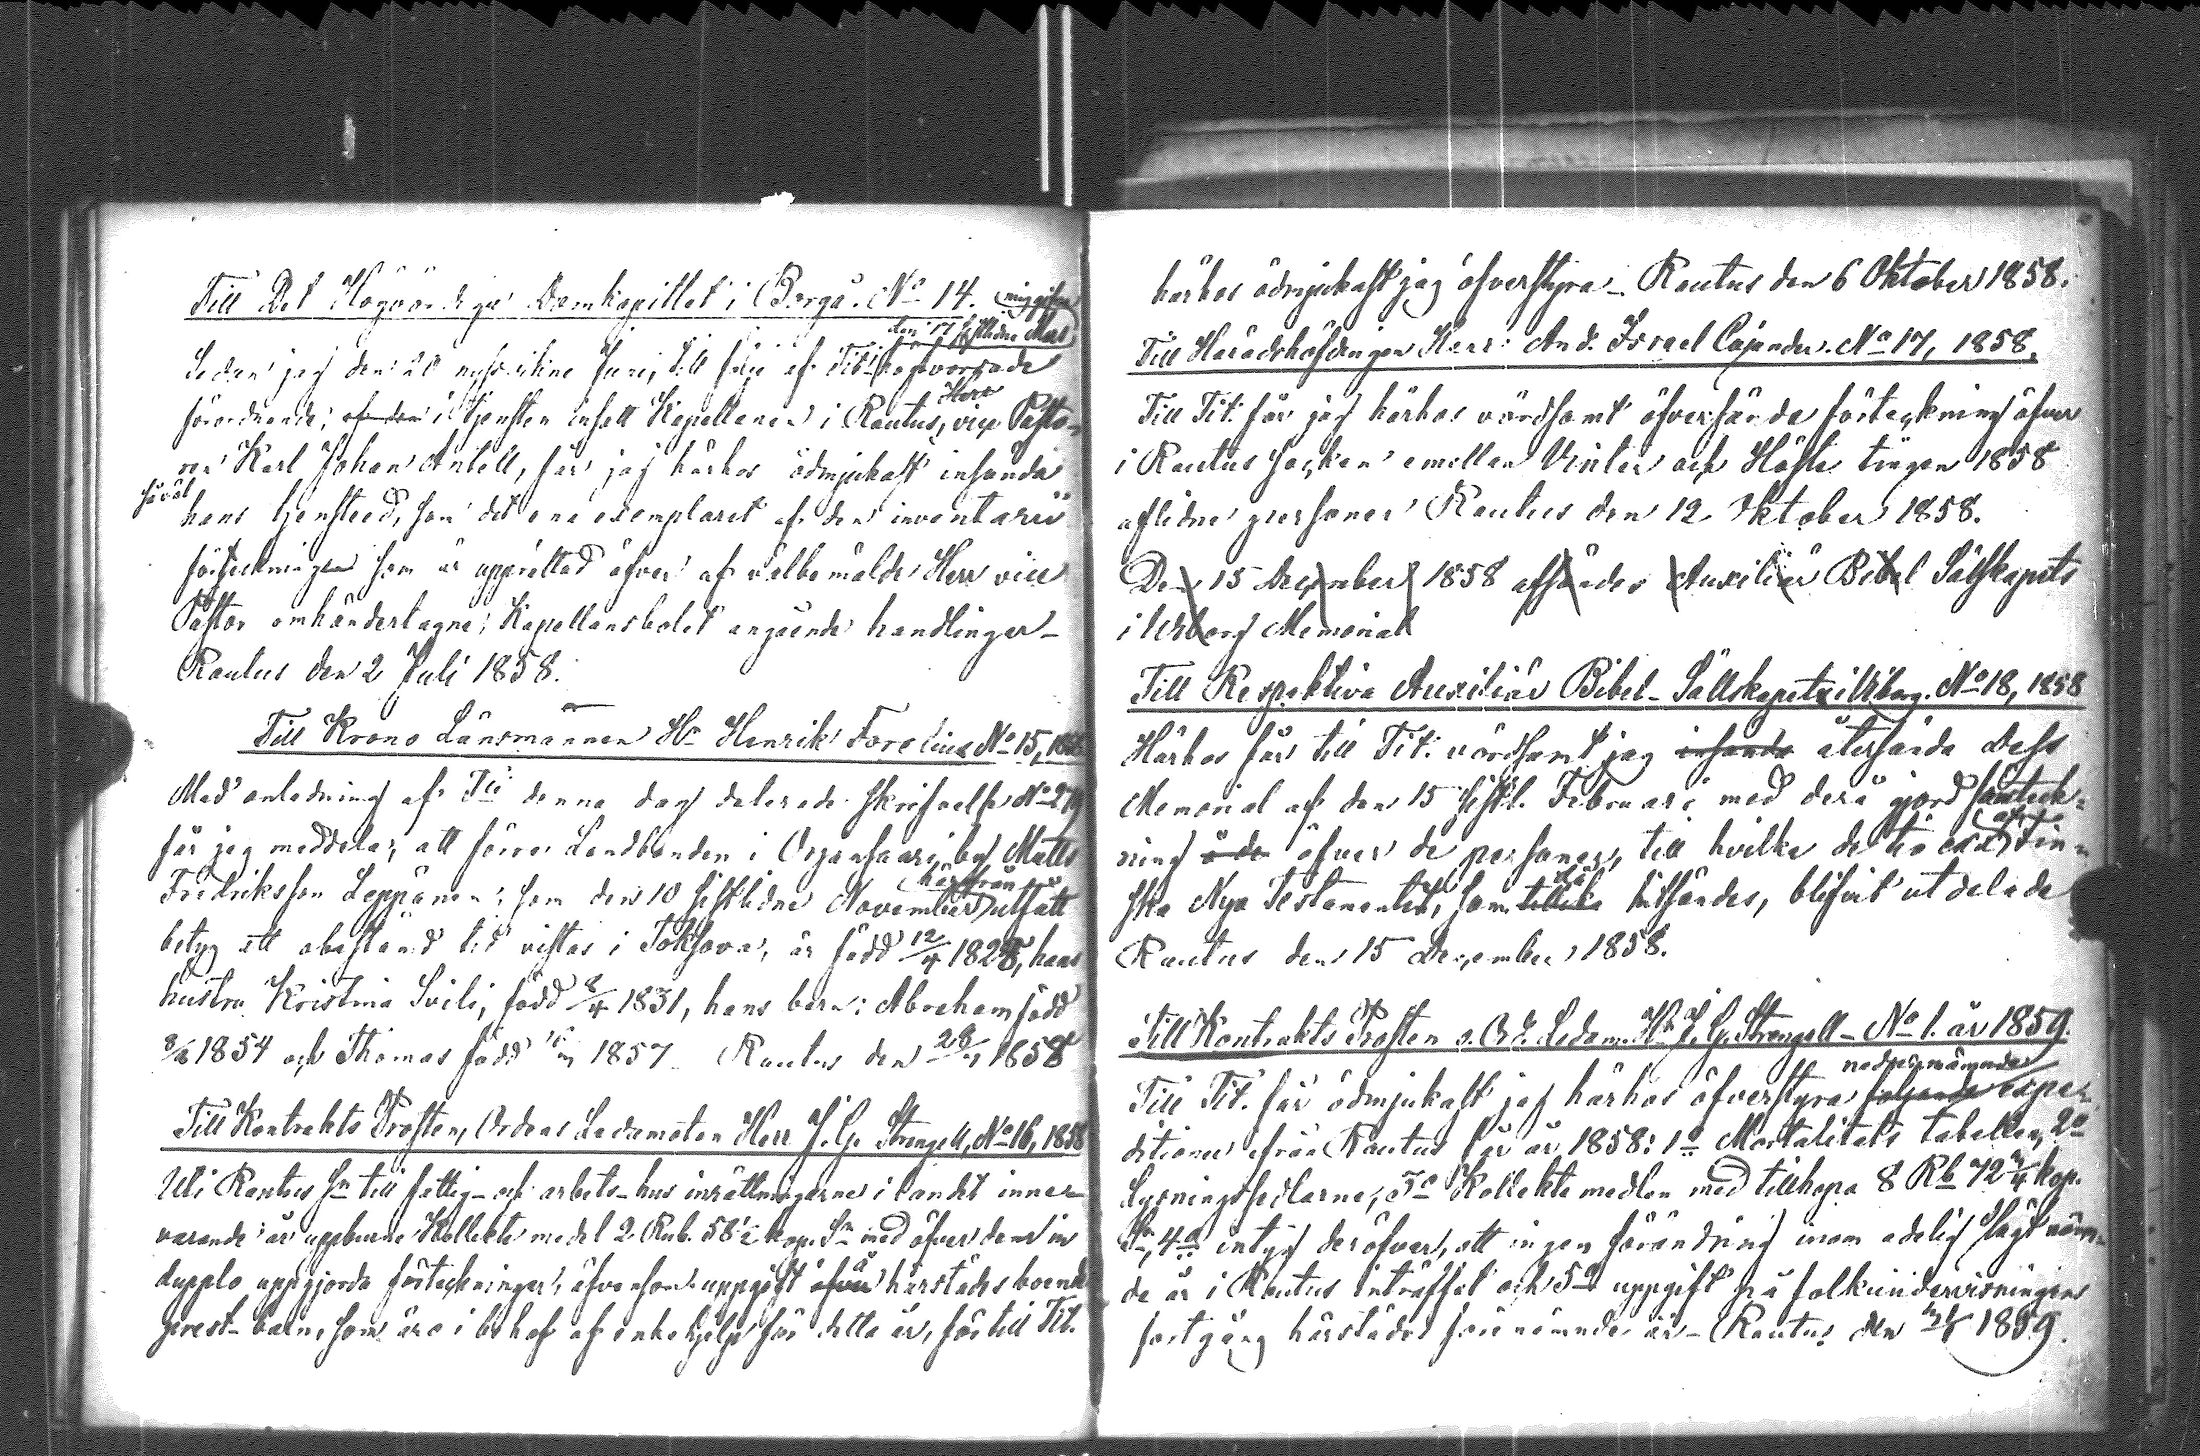 Till Det Högvördiga Domkapitlet i Borgå. No 14.
den 17 sistledne Maj
Sedan jag den 20 nyssvikne Juni, till följe af Tit:
förordnande, af den i tjensten insatt Kapellanen i Rautus, Herr vice Pasto-
ren Karl Johan Antell, får jag härhos ödmjukast insända
såväl
hans tjensteed, som det ena exemplaret af den inventarii
förteckningen som är upprättad öfver af välbemälde Herr vice
Pastor omhändertagne, Kapellansbolet angående handlingar –
Rautus den 2 Juli 1858.
Till Krono Länsmannen Hr Henrik Forelius No 15, 1858
Med anledning af Tit denna dag daterade skrifvelse No 279
får jag meddela, att förre Landbonden i Orjansaari by Matts
Fredriksson Leppänen, som den 10 sistledne November härifrån uttatt
betyg att obestämd tid vistas i Toksova, är född 12/4 1828, hans
hustru Kristina Svili, född 8/4 1831, hans barn: Abraham född
8/6 1854 och Thomas född 1857 Rautus den 28/ 1858
Till Kontrakts Prosten, Ordens Ledamoten Herr J. G. Strengell, No 16, 1858
Uti Rautus Sn till fattig- och arbets-hus inrättningarne i landet inne-
varande år uppburne Kollekte medel 2 Rub. 58 1/2 kop. Sr med öfver dem in
duplo uppgjorda förteckningar, äfvensom uppgift öfver å härstädes boende
prest-barn, som äro i behof af enkehjelp för detta år, får till Tit.
härhos ödmjukast jag öfverstyra – Rautus den 6 Oktober 1858.
Till Häradshöfdingen Herr And. Israel Cajander. No 17, 1858.
Till Tit: får jag härhos vördsamt öfversända förteckning öfver
i Rautus socken emellan Vinter och Höste tingen 1858
aflidne personer Rautus den 12 Oktober 1858.
Den 15 December 1858 afsändes Auxiliär Bibel Sällskapets
i Wiborg Memorial
Till Respektive Auxiliär Bibel-Sällskapet i Wiborg. No 18, 1858
Härhos får till Tit: vördsamt jag insända återsända Dess
Memorial af den 15 sistl. Februari med derå gjord anteck-
ning å de öfver de personer, till hvilka de tio ex. af Fin-
ska Nya Testamentet, som då hitsändes, blifvit utdelade
Rautus den 15 December 1858.
Till Kontrakts Prosten o. Ord. Ledam. Hr J. G. Strengell – No 1. år 1859.
nedannämnde
Till Tit. får ödmjukast jag härhos öfverstyra följande expe-
ditioner ifrån Rautus för år 1858: 1o Mortalitets tabellen, 2o
Lysningssedlarne, 3o Kollekte medlen med tillhopa 8 Rb 72 3/4 kop.
Sr, 4o intyg deröfver, att ingen förändring inom adelig slägt nämn-
de år i Rautus inträffat och 5o uppgift på folkundervisningens
fortgång härstädes förenämnde år – Rautus den 1859.